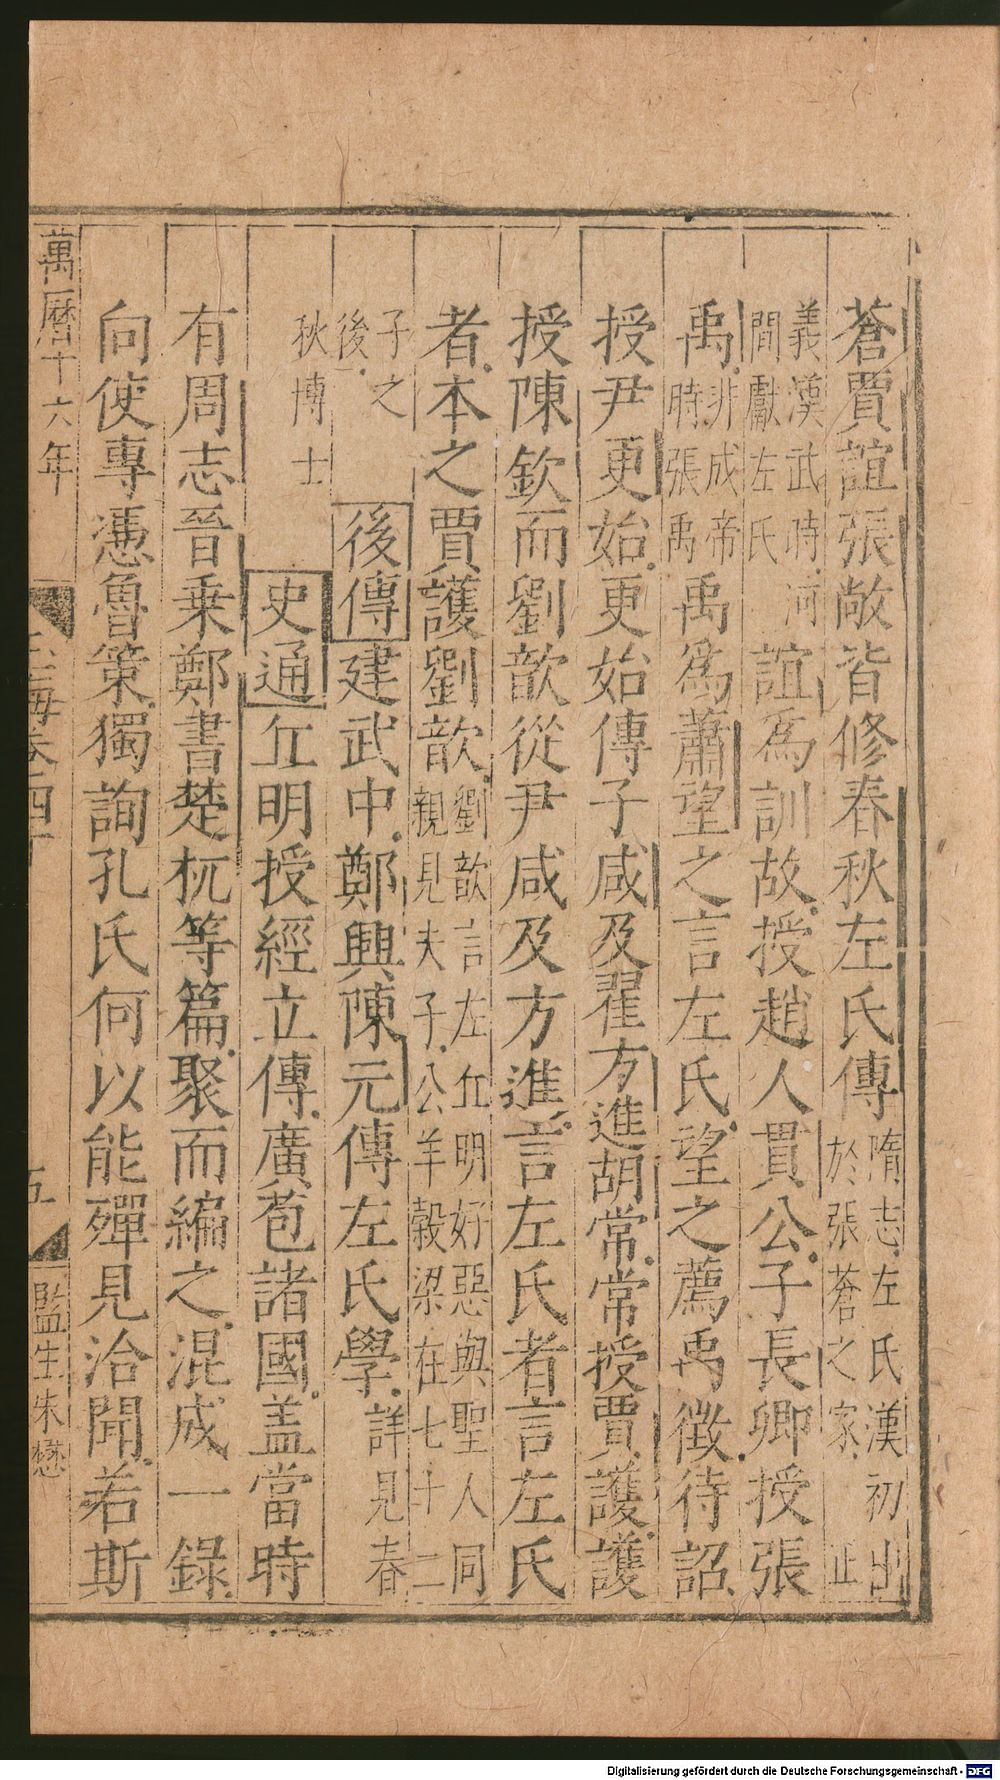 蒼賈誼張敞皆修春秋左氏傳隋志左氏漢初出於張蒼之家正
義漢武時河間獻左氏誼爲訓故授趙人貫公子長卿授張
禹非成帝時張禹禹爲蕭望之言左氏望之薦禹徵待詔
授尹更始更始傳子咸及翟方進胡常常授賈護護
授陳欽而劉歆從尹咸及方進言左氏者言左氏
者本之賈護劉歆劉歆言左丘明好惡與聖人同親見夫子公羊穀梁在七十二
子之後後傳建武中鄭興陳元傳左氏學詳見春
秋博士史通丘明授經立傳廣苞諸國盖當時
有周志晉乗鄭書楚杌等篇聚而編之混成一錄
向使專憑魯策獨詢孔氏何以能殫見洽聞若斯
萬曆十六年
玉海卷四十
五
監生朱懋
Digitalisierung gefördert durch die Deutsche Forschungsgemeinschaft - DFG